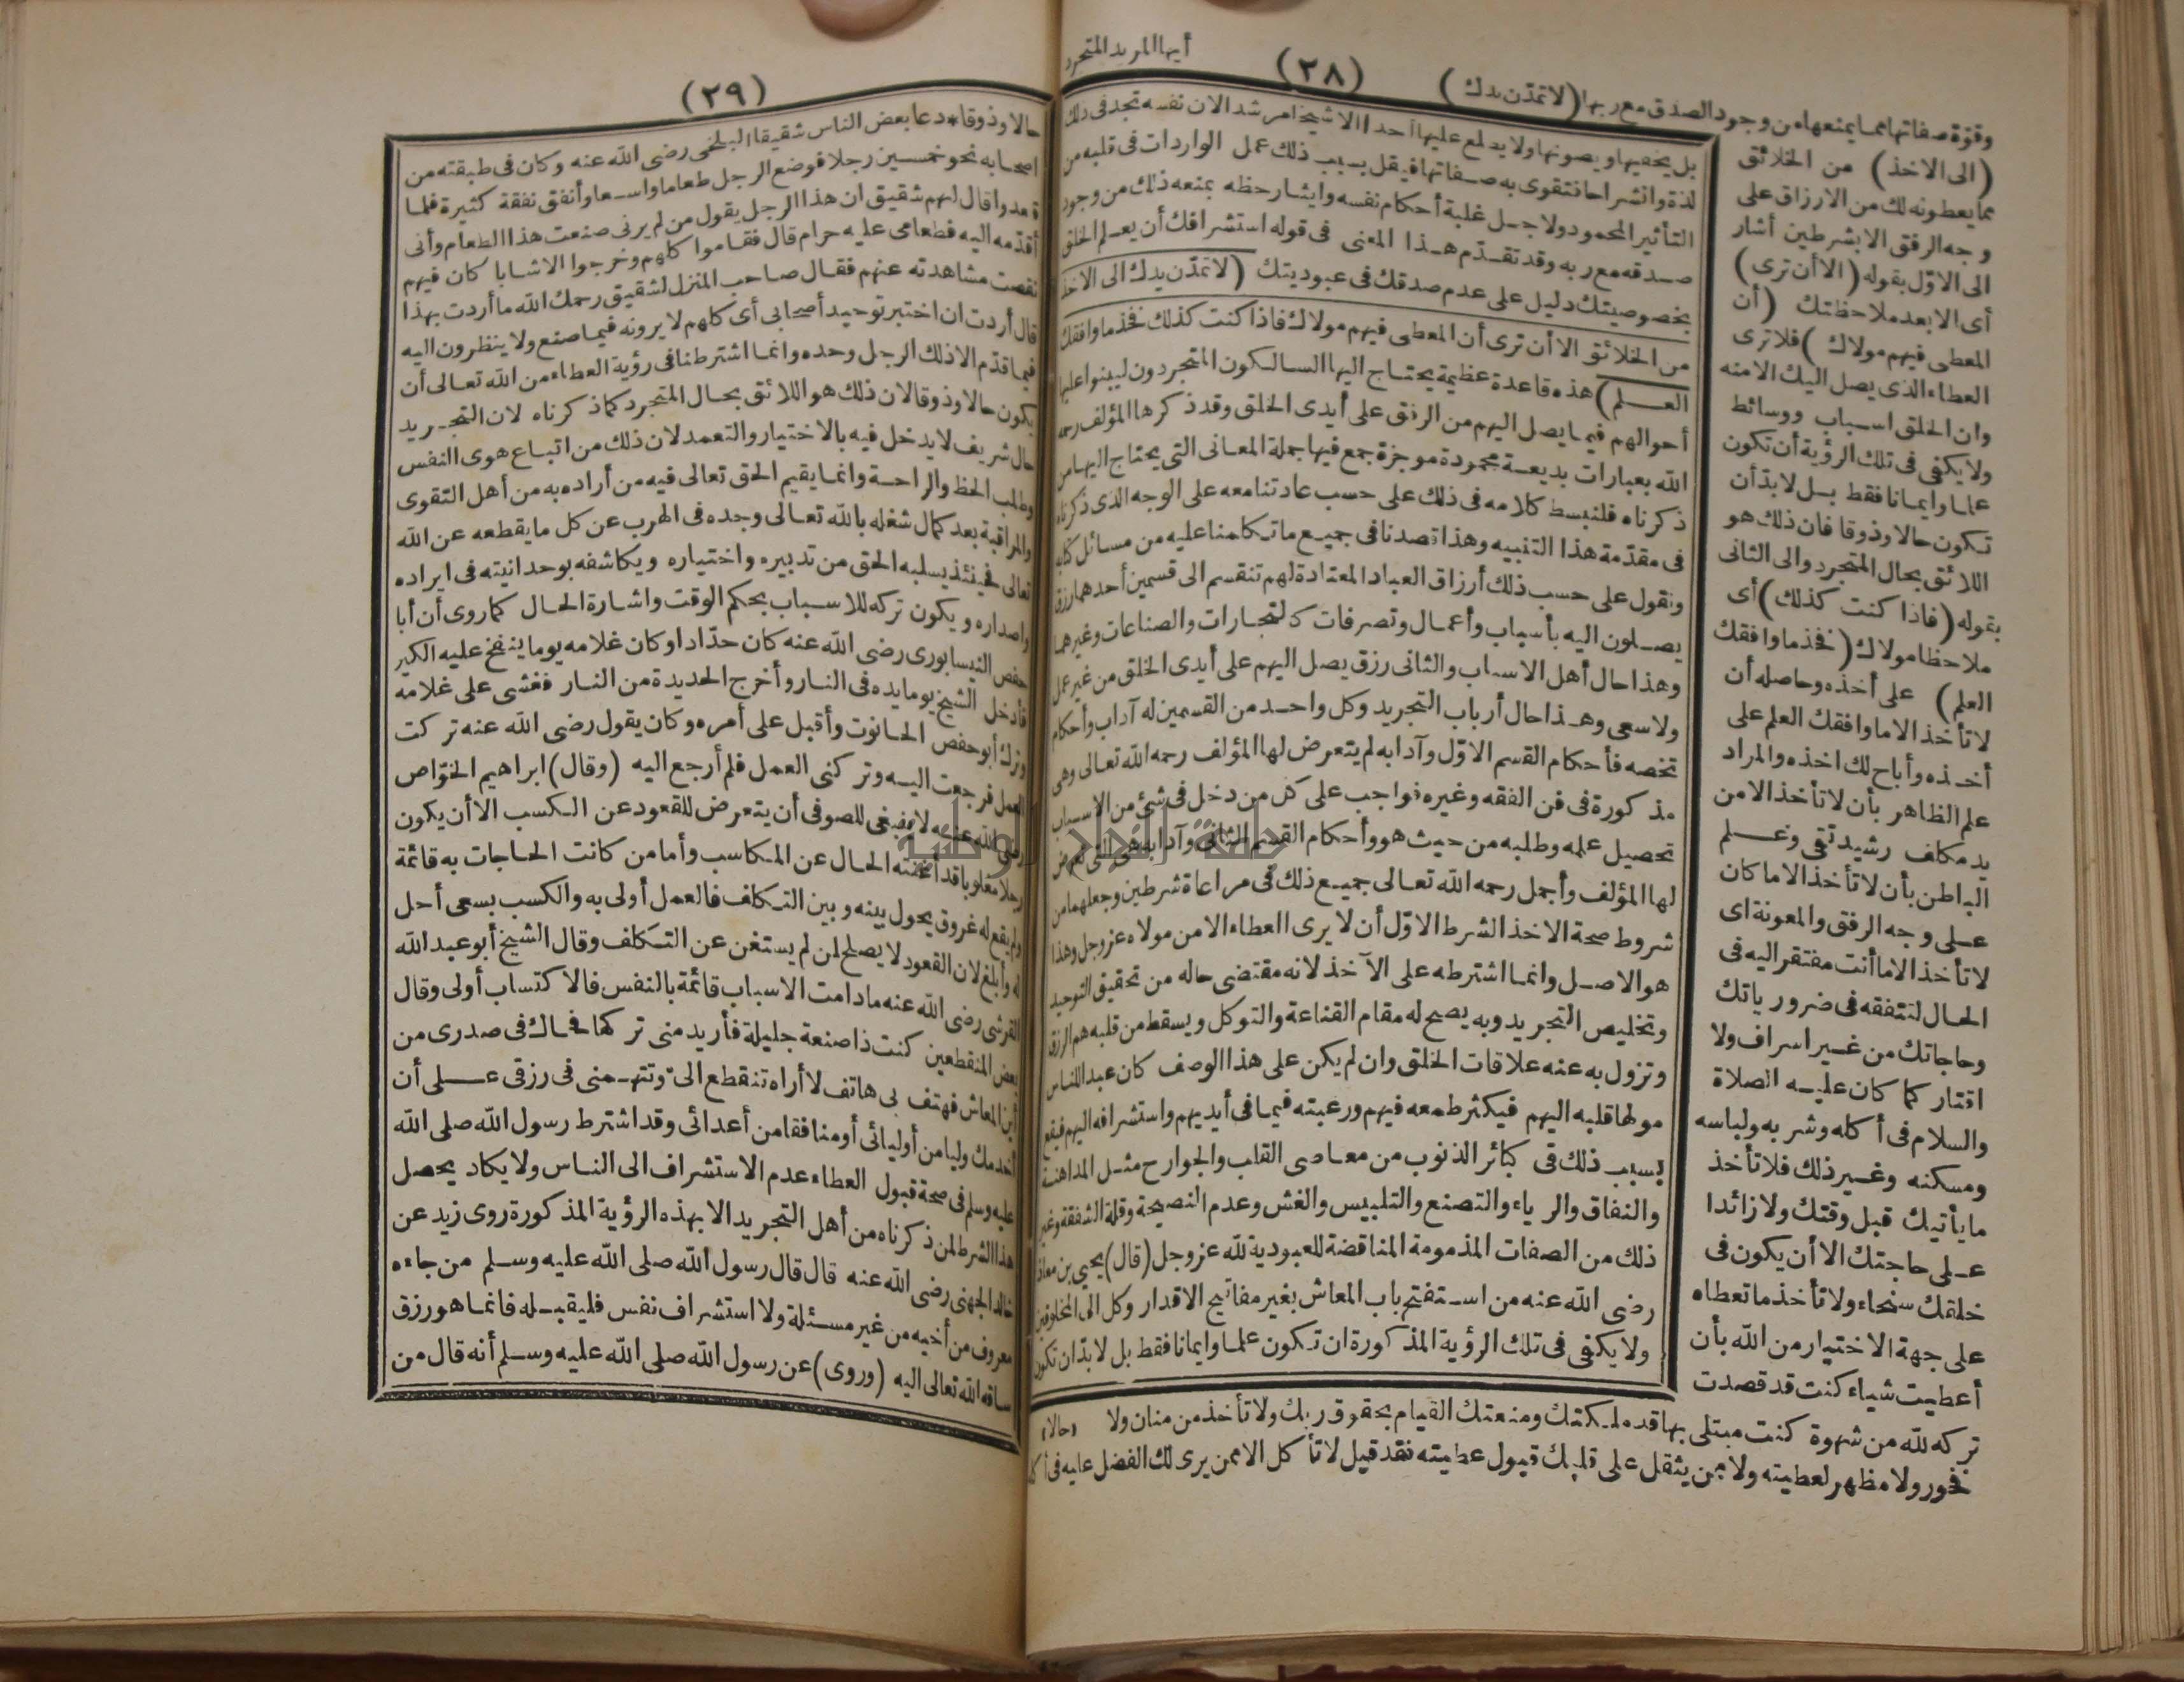 (٢٨)
أيها المريد المتجرد
وقوة صفاتها مما يمنعها من وجود الصدق مع ربها (لا تمدّن يدك)
(الى الاخذ) من الخلائق
مما يعطونه لك من الارزاق على
وجه الرفق الا بشرطين أشار
الى الاوّل بقوله (الا أن ترى)
أى الا بعد ملاحظتك (أن
المعطى فيهم مولاك) فلا ترى
العطاء الذى يصل اليك الا منه
وان الخلق اسباب ووسائط
ولا يكفى فى تلك الرؤية أن تكون
علما وايمانا فقط بل لابد أن
تكون حالا وذوقا فان ذلك هو
اللائق بحال المتجرد والى الثانى
بقوله (فاذا كنت كذلك) أى
ملاحظا مولاك (فخذ ما وافقك
العلم) على أخذه وحاصله أن
لا تأخذ الا ما وافقك العلم على
أخذه وأباح لك اخذه والمراد
علم الظاهر بأن لا تأخذ الا من
يد مكلف رشيد تقى وعلم
الباطن بأن لا تأخذ الا ما كان
على وجه الرفق والمعونة اى
لا تأخذ الا ما أنت مفتقر اليه فى
الحال لتنفقه فى ضرورياتك
وحاجاتك من غير اسراف ولا
اقتار كما كان عليه الصلاة
والسلام فى أكله وشربه ولباسه
ومسكنه وغير ذلك فلا تأخذ
ما يأتيك قبل وقتك ولا زائدا
على حاجتك الا أن يكون فى
خلقك سخاء ولا تأخذ ما تعطاه
على جهة الاختيار من الله بأن
أعطيت شياء كنت قد قصدت
تركه لله من شهوة كنت مبتلى بها قد ملكتك ومنعتك القيام بحقوق ربك ولا تأخذ من منان ولا
فخور ولا مظهر لعطيته ولا ممن يثقل على قلبك قبول عطيته فقد قيل لا تأكل الا ممن يرى لك الفضل عليه فى
بل يخفيها ويصونها ولا يطلع عليها أحدا الا شيخا مرشدا لان نفسه تجد فى ذلك
لذة وانشراحا فتتقوى به صفاتها فيقل بسبب ذلك عمل الواردات فى قلبه من
التأثير المحمود ولاجل غلبة أحكام نفسه وايثار حظه يمنعه ذلك من وجود
صدقه مع ربه وقد تقدّم هذا المعنى فى قوله استشرافك أن يعلم الخلق
بخصوصيتك دليل على عدم صدقك فى عبوديتك (لا تمدّن يدك الى الاخذ
من الخلائق الا أن ترى أن المعطى فيهم مولاك فاذا كنت كذلك فخذ ما وافقك
العلم) هذه قاعدة عظيمة يحتاج اليها السالكون المتجردون ليبنوا عليها
أحوالهم فيما يصل اليهم من الرفق على أيدى الخلق وقد ذكرها المؤلف رحمه
الله بعبارات بديعة محمودة موجزة جمع فيها جملة المعانى التى يحتاج اليها من
ذكرناه فلنبسط كلامه فى ذلك على حسب عادتنا معه على الوجه الذى ذكرناه
فى مقدّمة هذا التنبيه وهذا قصدنا فى جميع ما تكلمنا عليه من مسائل كتابه
ونقول على حسب ذلك أرزاق العباد المعتادة لهم تنقسم الى قسمين أحدهما رزق
يصلون اليه بأسباب وأعمال وتصرفات كالتجارات والصناعات وغيرهما
وهذا حال أهل الاسباب والثانى رزق يصل اليهم على أيدى الخلق من غير عمل
ولا سعى وهذا حال أرباب التجريد وكل واحد من القسمين له آداب وأحكام
تخصه فأحكام القسم الاوّل وآدابه لم يتعرض لها المؤلف رحمه الله تعالى وهى
مذكورة فى فن الفقه وغيره فواجب على كل من دخل فى شئ من الاسباب
تحصيل علمه وطلبه من حيث هو وأحكام القسم الثانى وآدابه هى التى تعرض
لها المؤلف وأجمل رحمه الله تعالى جميع ذلك فى مراعاة شرطين وجعلهما من
شروط صحة الاخذ الشرط الاوّل أن لا يرى العطاء الا من مولاه عز وجل وهذا
هو الاصل وانما اشترطه على الآخذ لانه مقتضى حاله من تحقيق التوحيد
وتخليص التجريد وبه يصح له مقام القناعة والتوكل ويسقط من قلبه هم الرزق
وتزول به عنه علاقات الخلق وان لم يكن على هذا الوصف كان عبدا للناس
مولها قلبه اليهم فيكثر طمعه فيهم ورغبته فيما فى أيديهم واستشرافه اليهم فيقع
بسبب ذلك فى كبائر الذنوب من معاصى القلب والجوارح مثل المداهنة
والنفاق والرياء والتصنع والتلبيس والغش وعدم النصيحة وقلة الشفقة وغير
ذلك من الصفات المذمومة المناقضة للعبودية لله عز وجل (قال) يحيى بن معاذ
رضى الله عنه من استفتح باب المعاش بغير مفاتيح الاقدار وكل الى المخلوقين
ولا يكفى فى تلك الرؤية المذكورة ان تكون علما وايمانا فقط بل لابدّ ان تكون
(حالا)
(٢٩)
حالا وذوقا * دعا بعض الناس شقيقا البلخى رضى الله عنه وكان فى طبقته من
اصحابه نحو خمسين رجلا فوضع الرجل طعاما واسعا وأنفق نفقة كثيرة فلما
قعدوا قال لهم شقيق ان هذا الرجل يقول من لم يرنى صنعت هذا الطعام وأنى
أقدّمه اليه فطعامى عليه حرام قال فقاموا كلهم وخرجوا الا شابا كان فيهم
نقصت مشاهدته عنهم فقال صاحب المنزل لشقيق رحمك الله ما أردت بهذا
قال أردت ان اختبر توحيد أصحابى أى كلهم لا يرونه فيما صنع ولا ينظرون اليه
فيما قدّم الا ذلك الرجل وحده وانما اشترطنا فى رؤية العطاء من الله تعالى أن
يكون حالا وذوقا لان ذلك هو اللائق بحال المتجرد كما ذكرناه لان التجريد
حال شريف لا يدخل فيه بالاختيار والتعمد لان ذلك من اتباع هوى النفس
وطلب الحظ والراحة وانما يقيم الحق تعالى فيه من أراده به من أهل التقوى
والمراقبة بعد كمال شغله بالله تعالى وجده فى الهرب عن كل ما يقطعه عن الله
تعالى فحينئذ يسلبه الحق من تدبيره واختياره ويكاشفه بوحدانيته فى ايراده
واصداره ويكون تركه للاسباب بحكم الوقت واشارة الحال كما روى أن أبا
حفص النيسابورى رضى الله عنه كان حدّادا وكان غلامه يوما ينفخ عليه الكير
فأدخل الشيخ يوما يده فى النار وأخرج الحديدة من النار فغشى على غلامه
وترك أبو حفص الحانوت وأقبل على أمره وكان يقول رضى الله عنه تركت
العمل فرجعت اليه وتركنى العمل فلم أرجع اليه (وقال) ابراهيم الخوّاص
رضى الله عنه لا ينبغى للصوفى أن يتعرض للقعود عن الكسب الا أن يكون
رجلا مغلوبا قد أغنته الحال عن المكاسب وأما من كانت الحاجات به قائمة
ولم يقع له عزوف يحول بينه وبين التكلف فالعمل أولى به والكسب بسعى أحل
له وأبلغ لان القعود لا يصلح لمن لم يستغن عن التكلف وقال الشيخ أبو عبد الله
القرشى رضى الله عنه ما دامت الاسباب قائمة بالنفس فالاكتساب أولى وقال
بعض المنقطعين كنت ذا صنعة جليلة فأريد منى تركها فحاك فى صدرى من
أين المعاش فهتف بى هاتف لا أراه تنقطع الىّ وتتهمنى فى رزقى على أن
أخدمك وليا من أوليائى أو منافقا من أعدائى وقد اشترط رسول الله صلى الله
عليه وسلم فى صحة قبول العطاء عدم الاستشراف الى الناس ولا يكاد يحصل
هذا الشرط لمن ذكرناه من أهل التجريد الا بهذه الرؤية المذكورة روى زيد عن
خالد الجهنى رضى الله عنه قال قال رسول الله صلى الله عليه وسلم من جاءه
معروف من أخيه من غير مسئلة ولا استشراف نفس فليقبله فانما هو رزق
ساقه الله تعالى اليه (وروى) عن رسول الله صلى الله عليه وسلم أنه قال من